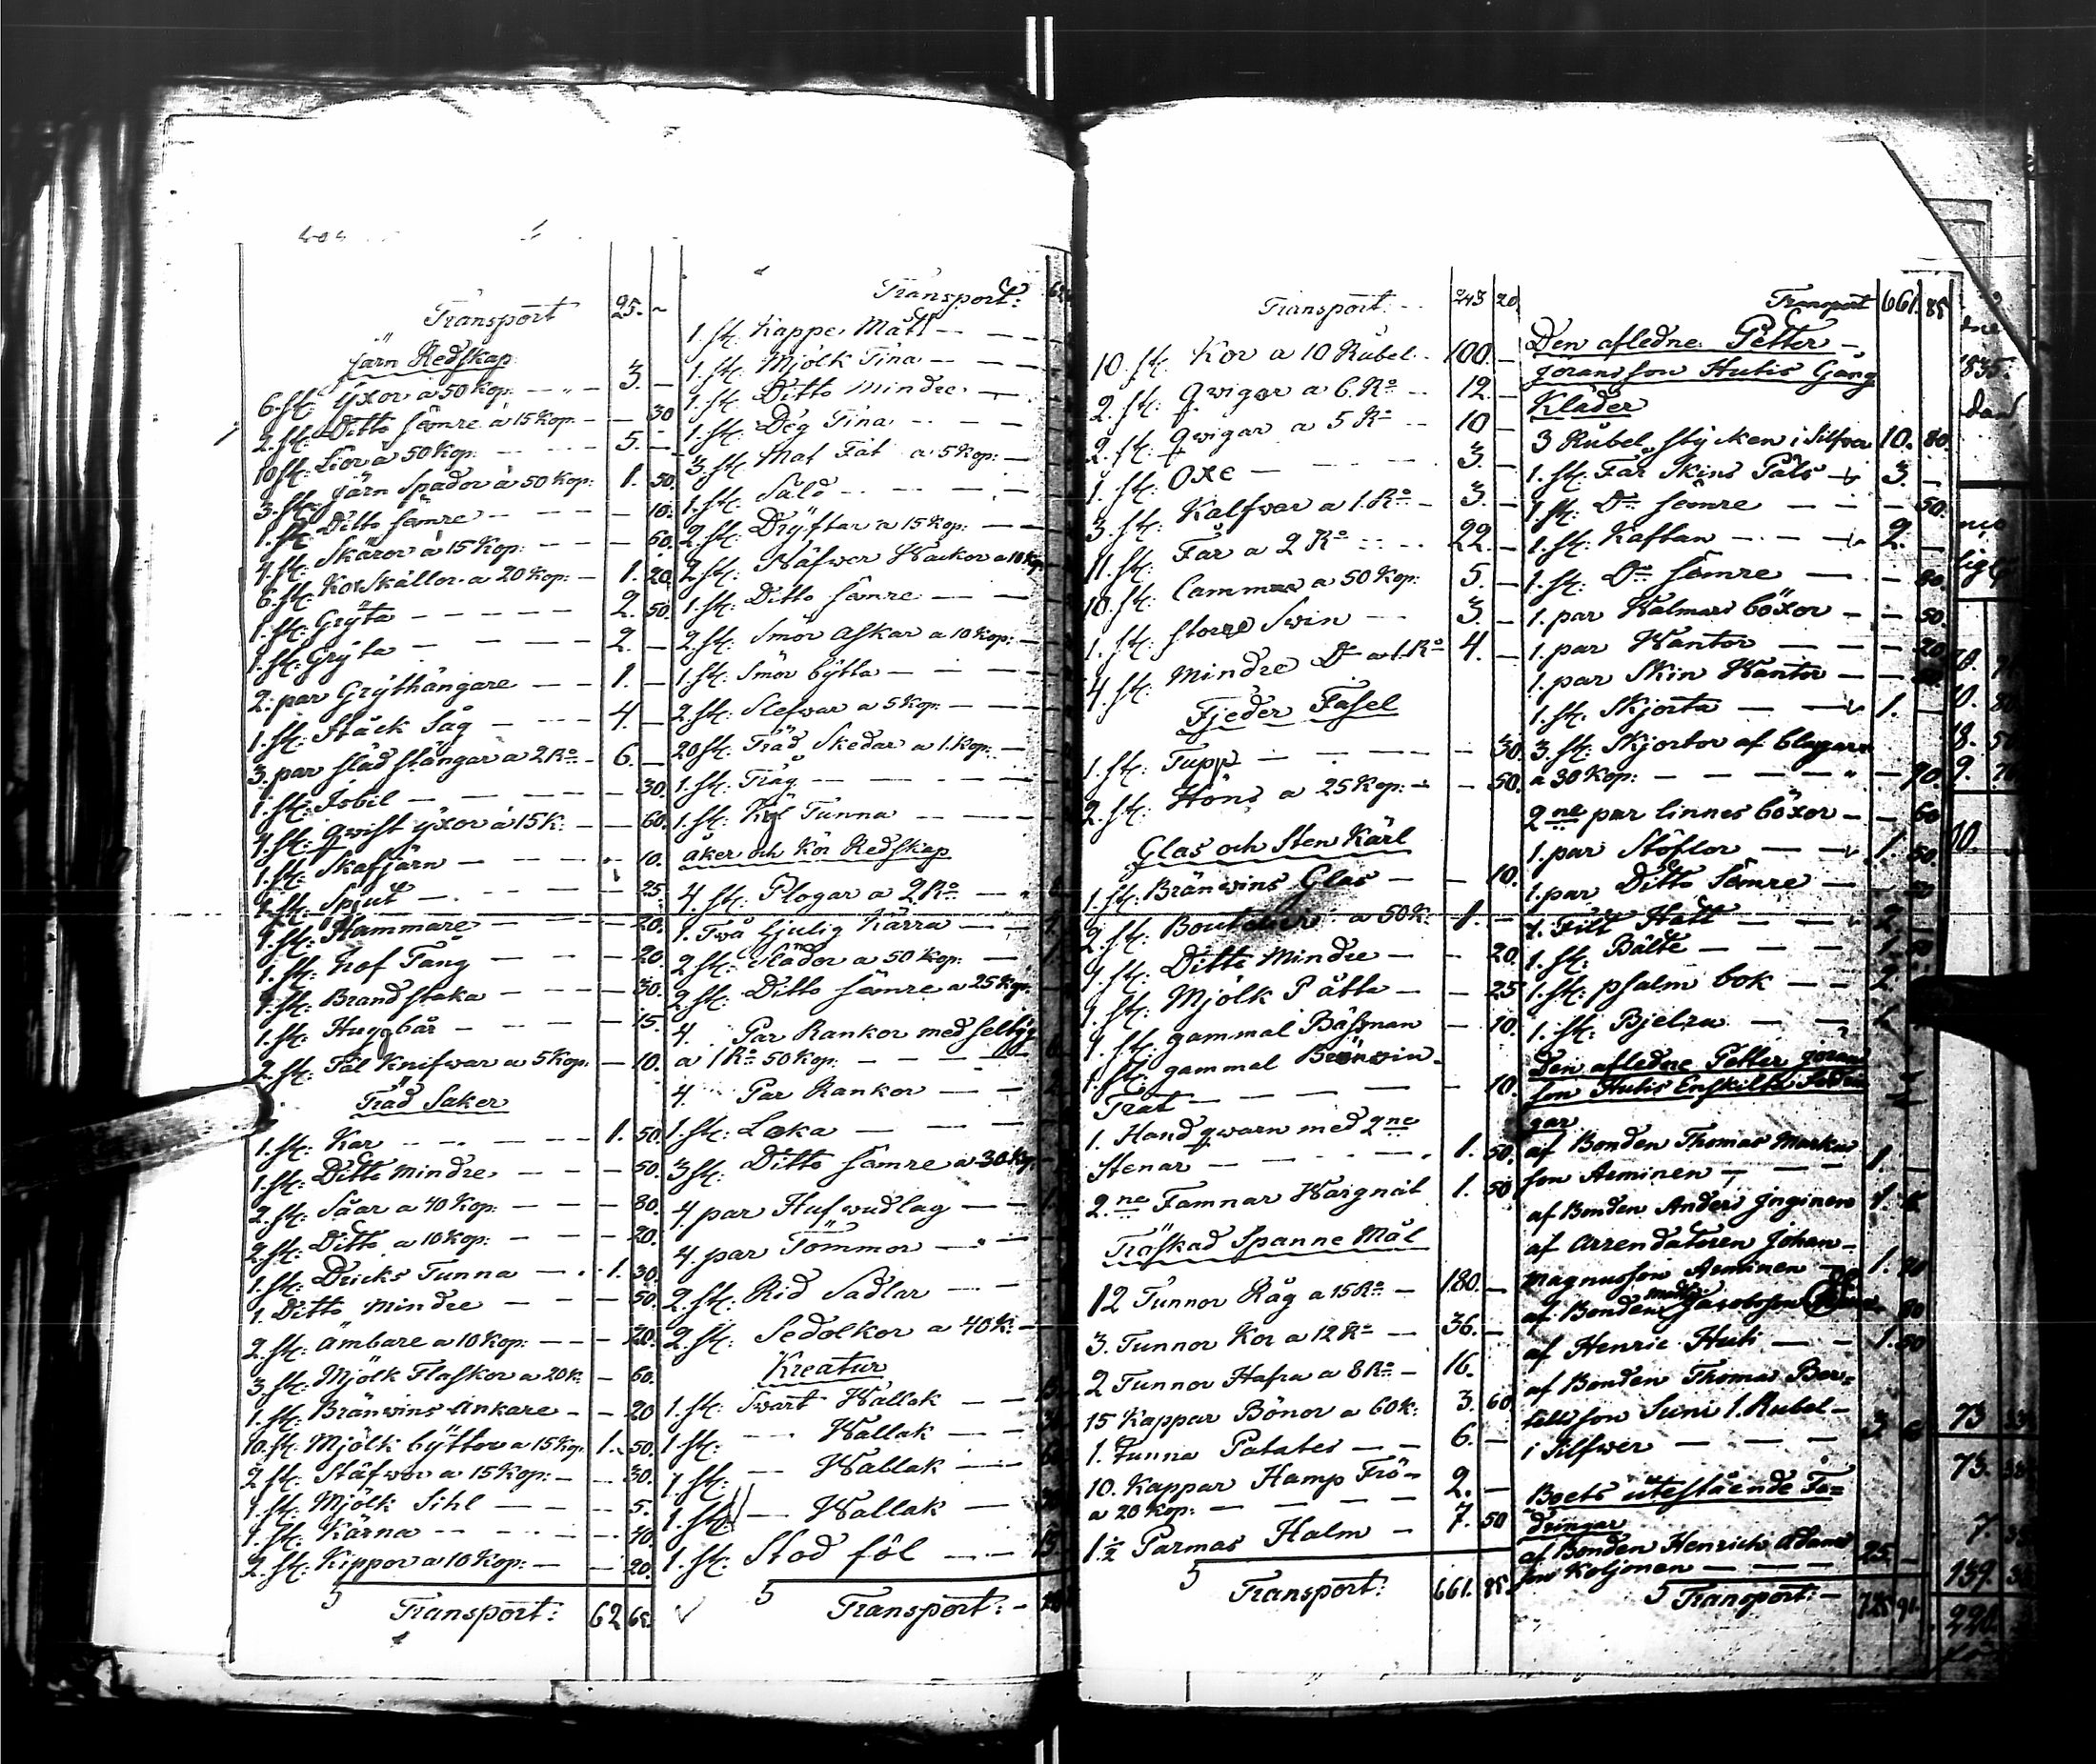 Transport 25. –
Järn Redskap
6. st: Yxor a 50 Kop: – – 3. –
2. st: Ditto sämre a 15 Kop: – – 30
10 st: Lior a 50 Kop: – – 5. –
3. st: Järn Spador a 50 Kop: 1. 50.
1. st: Ditto sämre – – – 10.
4. st: Skäror a 15 Kop: – – 60.
6. st: Ko Skällor a 20 Kop: – 1. 20
1. st: Gryta – – – – 2. 50.
1. st: Gryta – – – – 2. –
2. par Grythängare – – 1. –
1. st: Stäck Såg – – – 4. –
3. par släd stängar a 2 Ro – 6. –
1. st: Isbil – – – – 30.
4. st: qwist yxor a 15 K: – – 60.
1. st: Skafjärn – – – 10.
1. st: Spjut – – – – 25.
1. st: Hammare – – – 20.
1. st: Hof Tång – – – 20.
1. st: Brandstaka – – – 30.
1. st: Huggbår – – – 15.
2. st: Täl Knifwar a 5 Kop: – 10.
Träd Saker
1. st: Kar – – – – 1. 50.
1. st: Ditto Mindre – – – 50.
2. st: Såar a 40 Kop: – – – 80.
2. st: Ditto a 10 Kop: – – – 20.
1. st: Dricks Tunna – – 1. 30.
1. Ditto Mindre – – – 50.
2. st: ämbare a 10 Kop: – – 20.
3. st: Mjölk Flaskor a 20 K: – 60.
1. st: Bränwins Ankare – – 20
10. st: Mjölk byttor a 15 Kop: 1. 50.
2. st: Stäfwor a 15 Kop: – – 30.
1. st: Mjölk Sihl – – – 5.
1. st: Kärna – – – – 40.
2. st: Kippor a 10 Kop: – – 20.
Transport: 62 65.
Transport:
1. st: Kappe Mått – – –
1. st: Mjölk Tina – – –
1. st: Ditto Mindre – –
1. st: Deg Tina – – –
3. st: Mat Fat a 5 Kop: –
1. st: Såld – – – –
2. st: Dryftar a 15 Kop: – –
2. st: Näfwer Wackor a 10 Kop
1. st: Ditto sämre – –
2. st: Smör Askar a 10 Kop: –
1. st: Smör bytta – – –
2. st: Slefwar a 5 Kop: – –
20 st: Träd Skedar a 1. Kop: –
1. st: Tråg – – – –
1. st: Tunna – – –
åker och Kör Redskap
4. st: Plogar a 2 Ro – –
1. Twå Hjulig Kärra – –
2. st: Slädor a 50 Kop: –
2. st: Ditto sämre a 25 Kop:
4. Par Rankor med
a 1 Ro 50 Kop: – – –
4. Par Rankor – –
1. st: Loka – – –
3 st: Ditto sämre a 30 Kop
4 par Hufwudlag – –
4 par Tömmor – –
2. st: Rid Sadlar – –
2. st: Sedolkor a 40 K: –
Kreatur
1. st: Swart Wallak – –
1. st: – Wallak – –
1. st: – Wallak – –
1. st: – Wallak –
1. st: Stod föl – –
Transport: –
Transport: – 243 20.
10. st: Kor a 10 Rubel – 100. –
2. st: qwigor a 6. Ro – 12. –
2. st: qwigar a 5 Ro – 10 –
1. st: Oxe – – – – 3. –
3. st: Kalfwar a 1. Ro – 3. –
11. st: Får a 2 Ro – – 22. –
10. st: Lammar a 50 Kop: 5. –
1. st: större Swin – – 3. –
4. st: Mindre Do a 1. Ro 4. –
Fjeder Fäsel
1. st: Tupp – – – – 30.
2. st: Höns a 25 Kop: – – 50.
Glas och Sten Kärl
1. st: Bränwins Glas – – 10.
2. st: a 50 K: 1. –
1. st: Ditto Mindre – – 20.
1. st: Mjölk Pätta – – 25
1. st: gammal Båssman – 10.
1. st: gammal Bränwin
Trat – – – – – 10.
1. Hand qwarn med 2ne
Stenar – – – – 1. 50.
2.ne Famnar Wargnät 1. 50
Tröskad Spanne Mål
12 Tunnor Råg a 15 Ro – 180. –
3. Tunnor Kor a 12 Ro – 36. –
2 Tunnor Hafra a 8 Ro – 16.
15 Kappar Bönor a 60 K: 3. 60
1. Tunna Patates – – 6. –
10. Kappar Hamp Frö –
a 20 Kop: – – – – 2. –
1½ Parmas Halm – 7. 50
Transport: 661. 85.
Transport 661. 85
Den afledne Petter
Göransson Hutis Gång
Kläder
3 Rubel stycken i Silfver 10. 80.
1. st: Får Skins Päls – 3. –
1. st: Do sämre – – – 50.
1. st: Kaftan – – – 2. –
1. st: Do sämre – – 80.
1. par Walmars böxor – – 50.
1. par Wantor – – – 20
1. par Skin Wantor – –
1. st: Skjorta – – 1. –
3. st: Skjortor af
a 30 Kop: – – – – – 90.
2ne par linnes böxor – – 60
1. par Stöflor – – 1. 50.
1. par Ditto Sämre – – 50
1. Filt Hatt – – – 2. –
1. st: Bälte – – –
1. st: psalm bok – – 2.
1. st: Bjelra – –
Den afledne Petter Göran
son Hutis Enskilta
gar
af Bonden Thomas Markus
son Aeminen – – – 1. –
af Bonden Anders Inginen 1.
af Arrendatoren Johan
Magnusson Aeminen – 1. 20
af Bonden Jacobsson
af Henric Huti – – 1. 50
af Bonden Thomas Ber=
telsson Suni 1. Rubel –
i Silfwer – – – 3
Boets utestående Fo=
dringar
af Bonden Henrich Adams
son Koljonen – – – 25. –
Transport: –